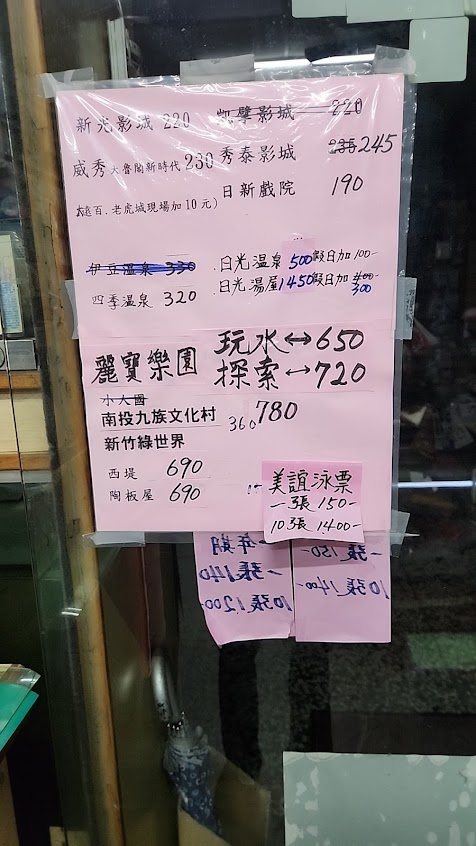 新光影城 220 凱擘影城 220
威秀 大魯閣新時代 230 秀泰影城 235 245
日新戲院 190
(遠百.老虎城現場加10元)
伊豆溫泉 330 .日光溫泉 500 假日加 100-
四季溫泉 320 .日光湯屋 1450 假日加 400- 300
麗寶樂園 玩水↔650
探索↔720
小人國
南投九族文化村 780
新竹綠世界 360
西堤 690
陶板屋 690
美誼泳票
一張 150-
10張 1400-
一年期
一張140
10張1200-
一張150-
10張1400-